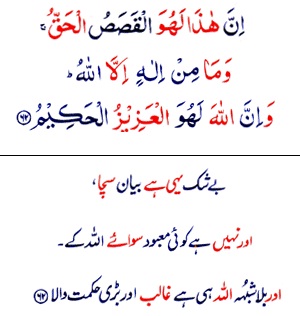 اِنَّ هٰذَا لَهُوَ الْقَصَصُ الْحَقُّ ۚ
وَمَا مِنْ اِلٰهٍ اِلَّا اللّٰهُ ؕ
وَاِنَّ اللّٰهَ لَهُوَ الْعَزِيْزُ الْحَكِيْمُ ﴿۶۲﴾
بے شک یہی ہے بیان سچا،
اور نہیں ہے کوئی معبود سوائے اللہ کے۔
اور بلاشبہ اللہ ہی ہے غالب اور بڑی حکمت والا ﴿۶۲﴾